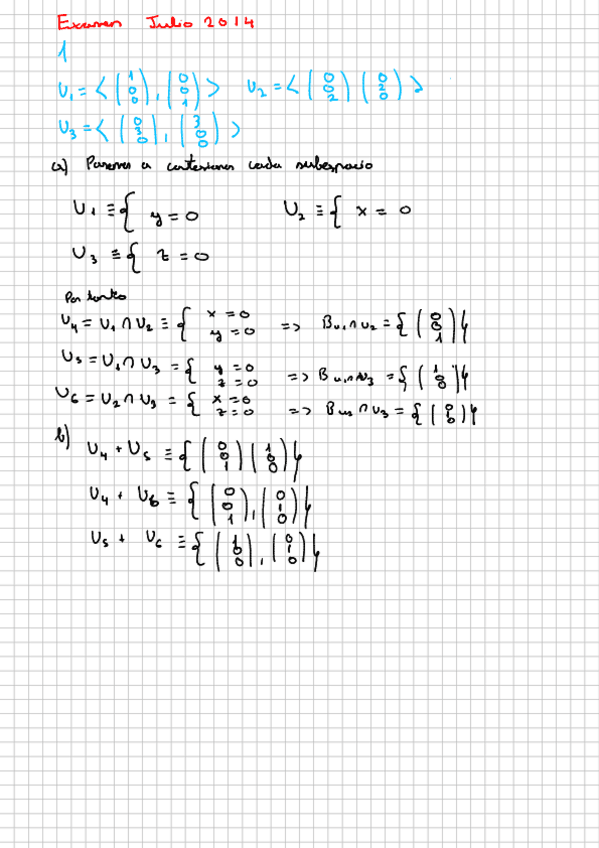 Examen Julio 2014
1
U₁ = < (1 0 0), (0 0 1) > U₂ = < (0 0 2) (0 2 0) >
U₃ = < (0 3 0), (3 0 0) >
a) Pasemos a cartesianas cada subespacio
U₁ ≡ { y = 0 U₂ ≡ { x = 0
U₃ ≡ { z = 0
Por tanto
U₄ = U₁ ∩ U₂ ≡ { x = 0 y = 0 => B U₁ ∩ U₂ = { (0 0 1) }
U₅ = U₁ ∩ U₃ = { y = 0 z = 0 => B U₁ ∩ U₃ = { (1 0 0) }
U₆ = U₂ ∩ U₃ = { x = 0 z = 0 => B ∩ U₃ = { (0 1 0) }
b) U₄ + U₅ ≡ { (0 0 1) (1 0 0) }
U₄ + U₆ ≡ { (0 0 1), (0 1 0) }
U₅ + U₆ ≡ { (1 0 0), (0 1 0) }